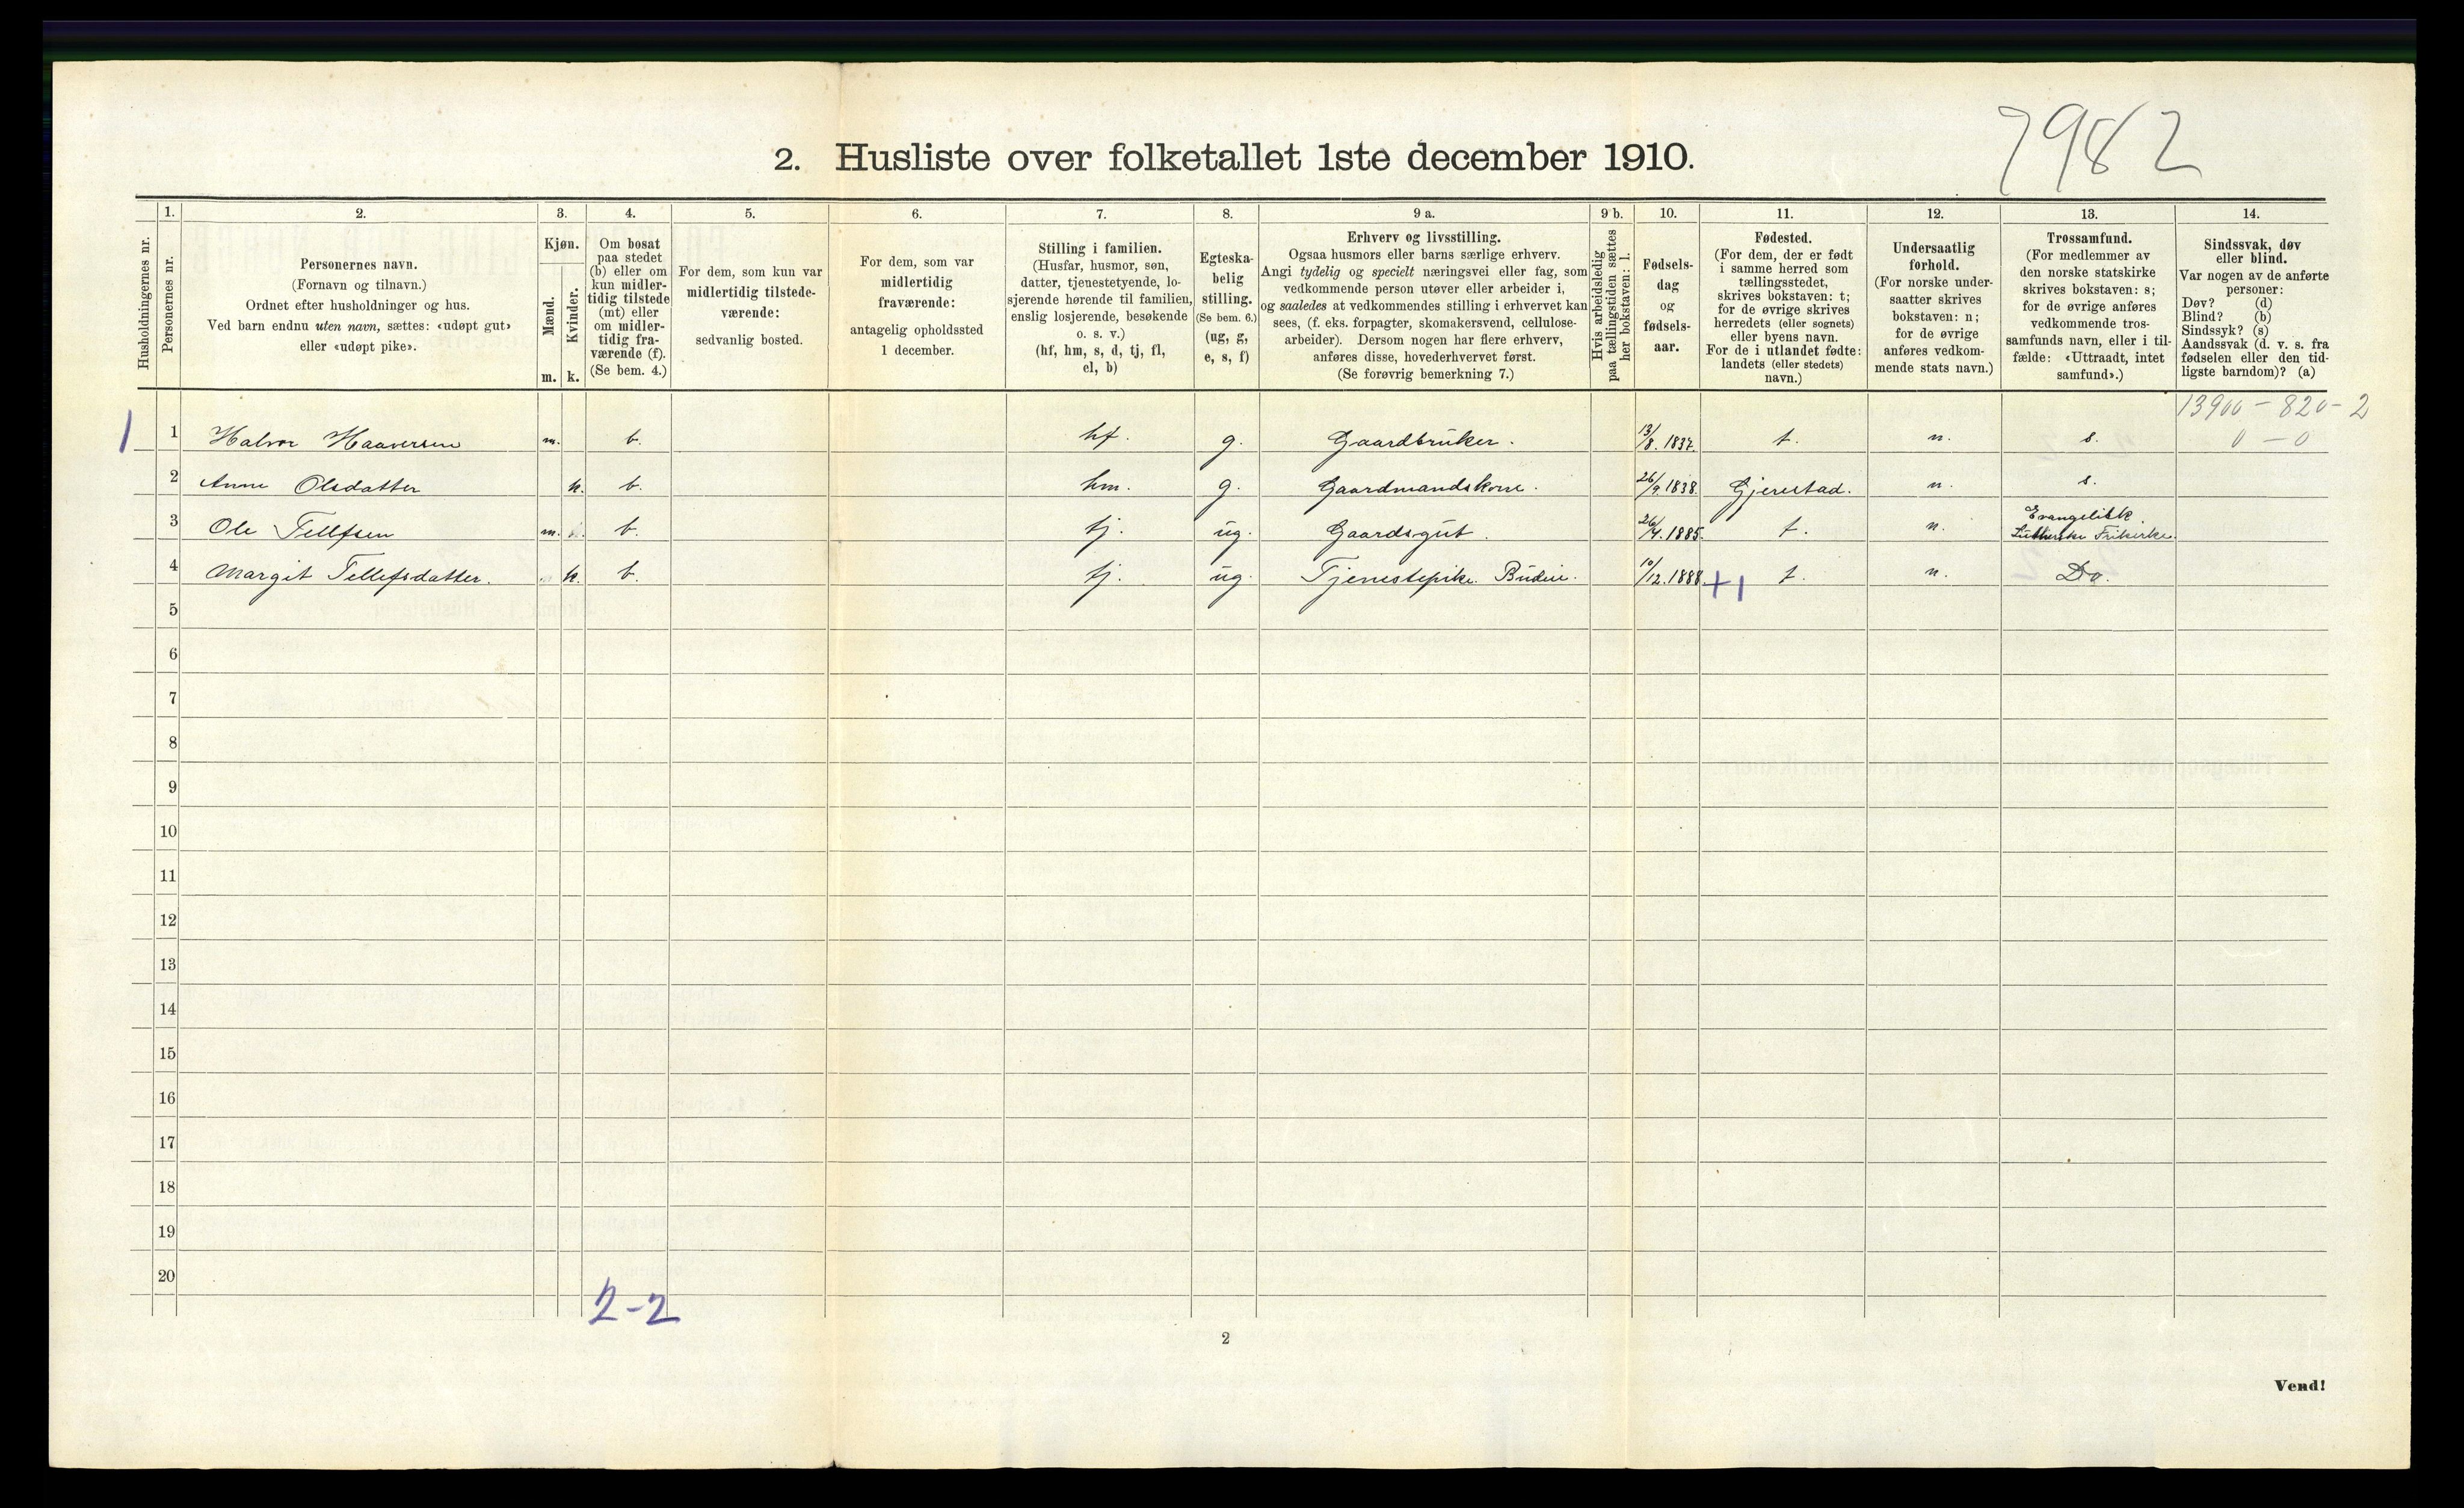 7982
2. Husliste over folketallet 1ste december 1910.
Husholdningernes nr.
1.
Personernes nr.
2.
Personernes navn.
(Fornavn og tilnavn.)
Ordnet efter husholdninger og hus.
Ved barn endnu uten navn, sættes: «udøpt gut»
eller «udøpt pike».
3.
Kjøn.
Mænd.
Kvinder.
m. k.
4.
Om bosat
paa stedet
(b) eller om
kun midler-
tidig tilstede
(mt) eller
om midler-
tidig fra-
værende (f).
(Se bem. 4.)
5.
For dem, som kun var
midlertidig tilstede-
værende:
sedvanlig bosted.
6.
For dem, som var
midlertidig
fraværende:
antagelig opholdssted
1 december.
7.
Stilling i familien.
(Husfar, husmor, søn,
datter, tjenestetyende, lo-
sjerende hørende til familien,
enslig losjerende, besøkende
o. s. v.)
(hf, hm, s, d, tj, fl,
el, b)
8.
Egteska-
belig
stilling.
(Se bem. 6.)
(ug, g,
e, s, f)
9 a.
Erhverv og livsstilling.
Ogsaa husmors eller barns særlige erhverv.
Angi tydelig og specielt næringsvei eller fag, som
vedkommende person utøver eller arbeider i,
og saaledes at vedkommendes stilling i erhvervet kan
sees, (f. eks. forpagter, skomakersvend, cellulose-
arbeider). Dersom nogen har flere erhverv,
anføres disse, hovederhvervet først.
(Se forøvrig bemerkning 7.)
9 b.
Hvis arbeidsledig
paa tællingstiden sættes
her bokstaven: l.
10.
Fødsels-
dag
og
fødsels-
aar.
11.
Fødested.
(For dem, der er født
i samme herred som
tællingsstedet,
skrives bokstaven: t;
for de øvrige skrives
herredets (eller sognets)
eller byens navn.
For de i utlandet fødte:
landets (eller stedets)
navn.)
12.
Undersaatlig
forhold.
(For norske under-
saatter skrives
bokstaven: n;
for de øvrige
anføres vedkom-
mende stats navn.)
13.
Trossamfund.
(For medlemmer av
den norske statskirke
skrives bokstaven: s;
for de øvrige anføres
vedkommende tros-
samfunds navn, eller i til-
fælde: «Uttraadt, intet
samfund».)
14.
Sindssvak, døv
eller blind.
Var nogen av de anførte
personer:
Døv? (d)
Blind? (b)
Sindssyk? (s)
Aandssvak (d. v. s. fra
fødselen eller den tid-
ligste barndom)? (a)
13900 - 820 - 2
1 1 Halvor Haaversen m. b. hf. g. Gaardbruker. 13/8. 1837. t. n. s. 0 - 0
2 Anne Olsdatter k. b. hm. g. Gaardmandskone. 26/9. 1838. Gjerestad. n. s.
3 Ole Tellfsen m. b. tj. ug. Gaardsgut. 26/4. 1885. t. n. Evangelisk
Lutherske Frikirke.
4 Margit Tellefsdatter. k. b. tj. ug. Tjenestepike. Budeie. 10/12. 1888. +1 t. n. Do.
5
6
7
8
9
10
11
12
13
14
15
16
17
18
19
20
2-2
2
Vend!